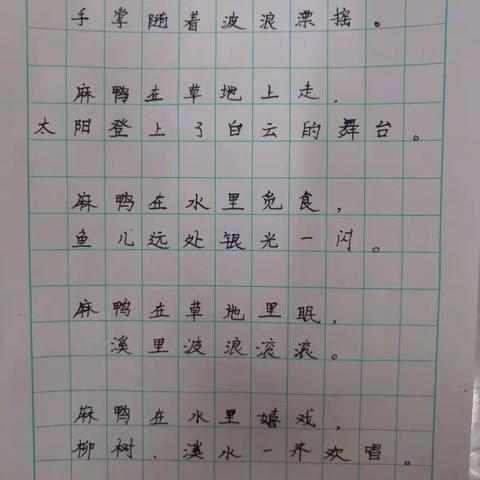 手掌随着波浪漂摇。
麻鸭在草地上走，
太阳登上了白云的舞台。
麻鸭在水里觅食，
鱼儿远处银光一闪。
麻鸭在草地里眠，
溪里波浪滚滚。
麻鸭在水里嬉戏，
柳树、溪水一齐欢唱。